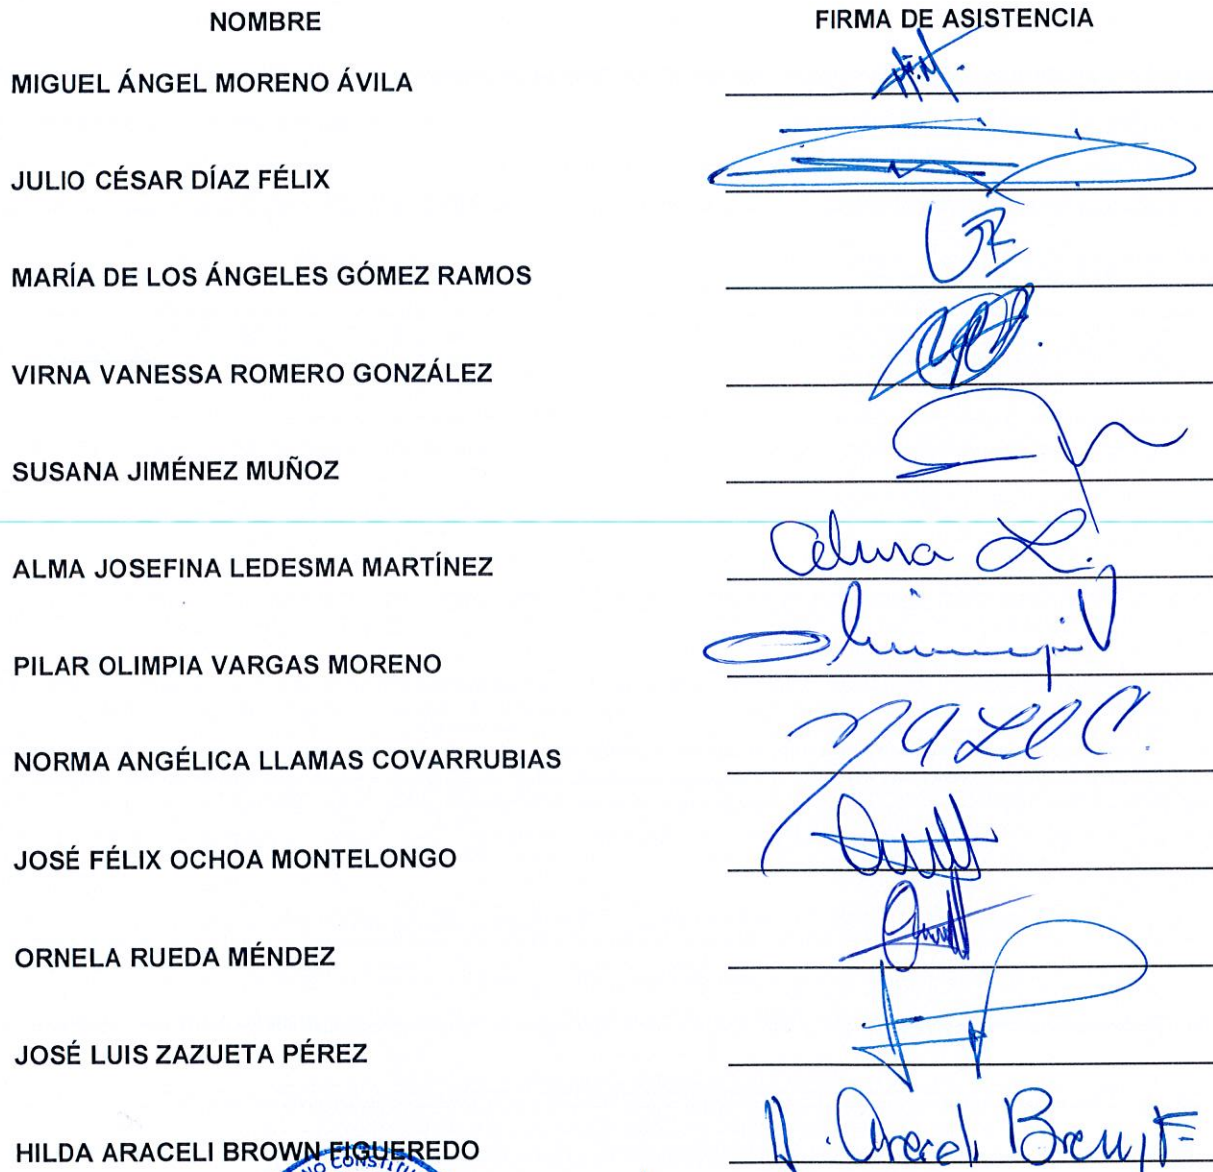 NOMBRE FIRMA DE ASISTENCIA
MIGUEL ÁNGEL MORENO ÁVILA
JULIO CÉSAR DÍAZ FÉLIX
MARÍA DE LOS ÁNGELES GÓMEZ RAMOS
VIRNA VANESSA ROMERO GONZÁLEZ
SUSANA JIMÉNEZ MUÑOZ
ALMA JOSEFINA LEDESMA MARTÍNEZ Alma L.
PILAR OLIMPIA VARGAS MORENO
NORMA ANGÉLICA LLAMAS COVARRUBIAS
JOSÉ FÉLIX OCHOA MONTELONGO
ORNELA RUEDA MÉNDEZ
JOSÉ LUIS ZAZUETA PÉREZ
HILDA ARACELI BROWN FIGUEREDO H. Araceli Brown F